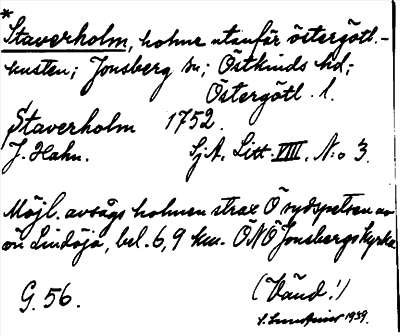 * Staverholm, holme utanför östergötl.-
kusten; Jonsberg sn; Östkinds hd;
Östergötl. l.
Staverholm 1752.
J. Hahn. SjA. Litt. VIII. N:o 3.
Möjl. avsågs holmen strax Ö sydspetsen av
ön Lindöja, bel. 6,9 km. ÖNÖ Jonsbergs kyrka
G. 56. (Vänd!)
1939.